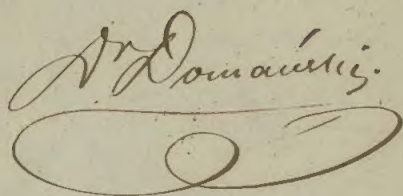 Dr Domański.